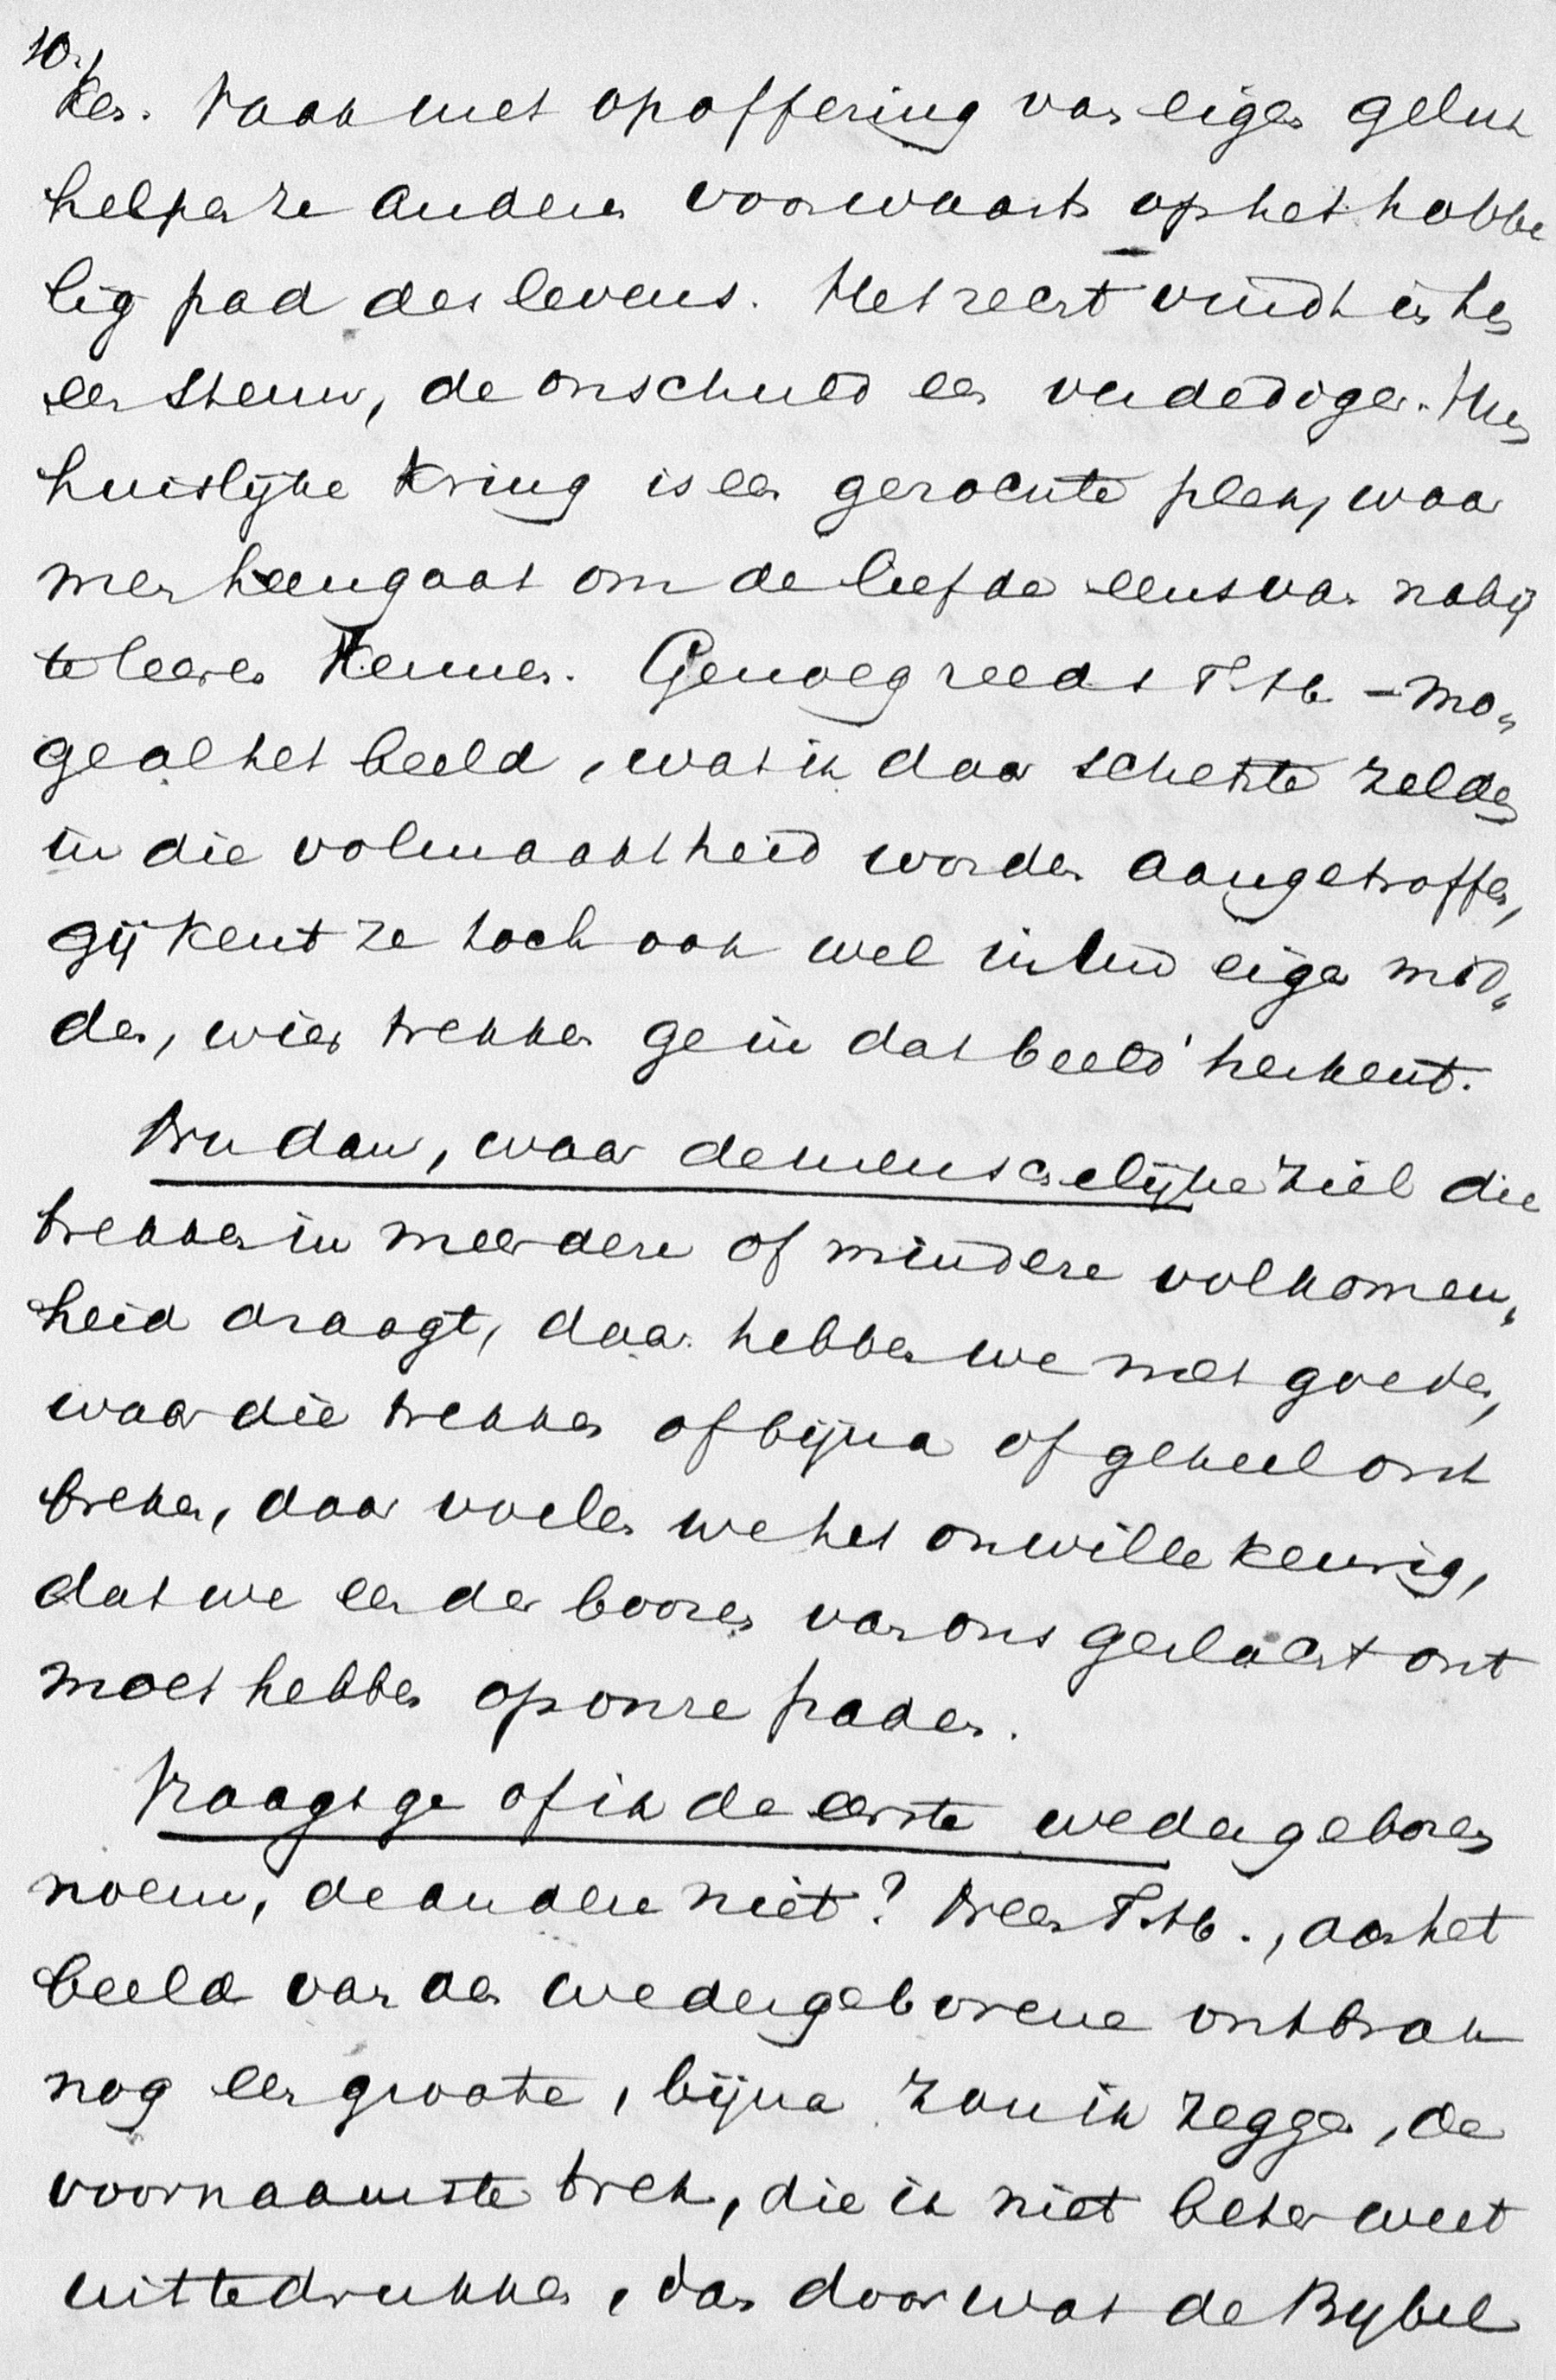 10.
ken. Vaak met opoffering van eigen geluk
helpen ze anderen voorwaarts op het hobbe
lig pad des levens. Het recht vindt in hen
een steun, de onschuld een verdediger. Hun
huislijke kring is een gezochte plek, waar
men heengaat om de liefde eens van nabij
te leeren kennen. Genoeg reeds T. H. – mo„
ge al het beeld, wat ik daar schetste zelden
in die volmaaktheid worden aangetroffen,
gij kent ze toch ook wel in Uw eigen mid„
den, wier trekken ge in dat beeld herkent.
Nu dan, waar de menschelijke ziel die
trekken in meerdere of mindere volkomen„
heid draagt, daar hebben we met goeden,
waar die trekken of bijna of geheel ont
breken, daar voelen we het onwillekeurig,
dat we een der boozen van ons geslacht ont
moet hebben op onze paden.
Vraagt ge of ik de eerste wedergeboren
noem, de andere niet? Neen T. H., aan het
beeld van den wedergeborene ontbrak
nog een groote, bijna zou ik zeggen, de
voornaamste trek, die ik niet beter weet
uittedrukken, dan door wat de Bijbel